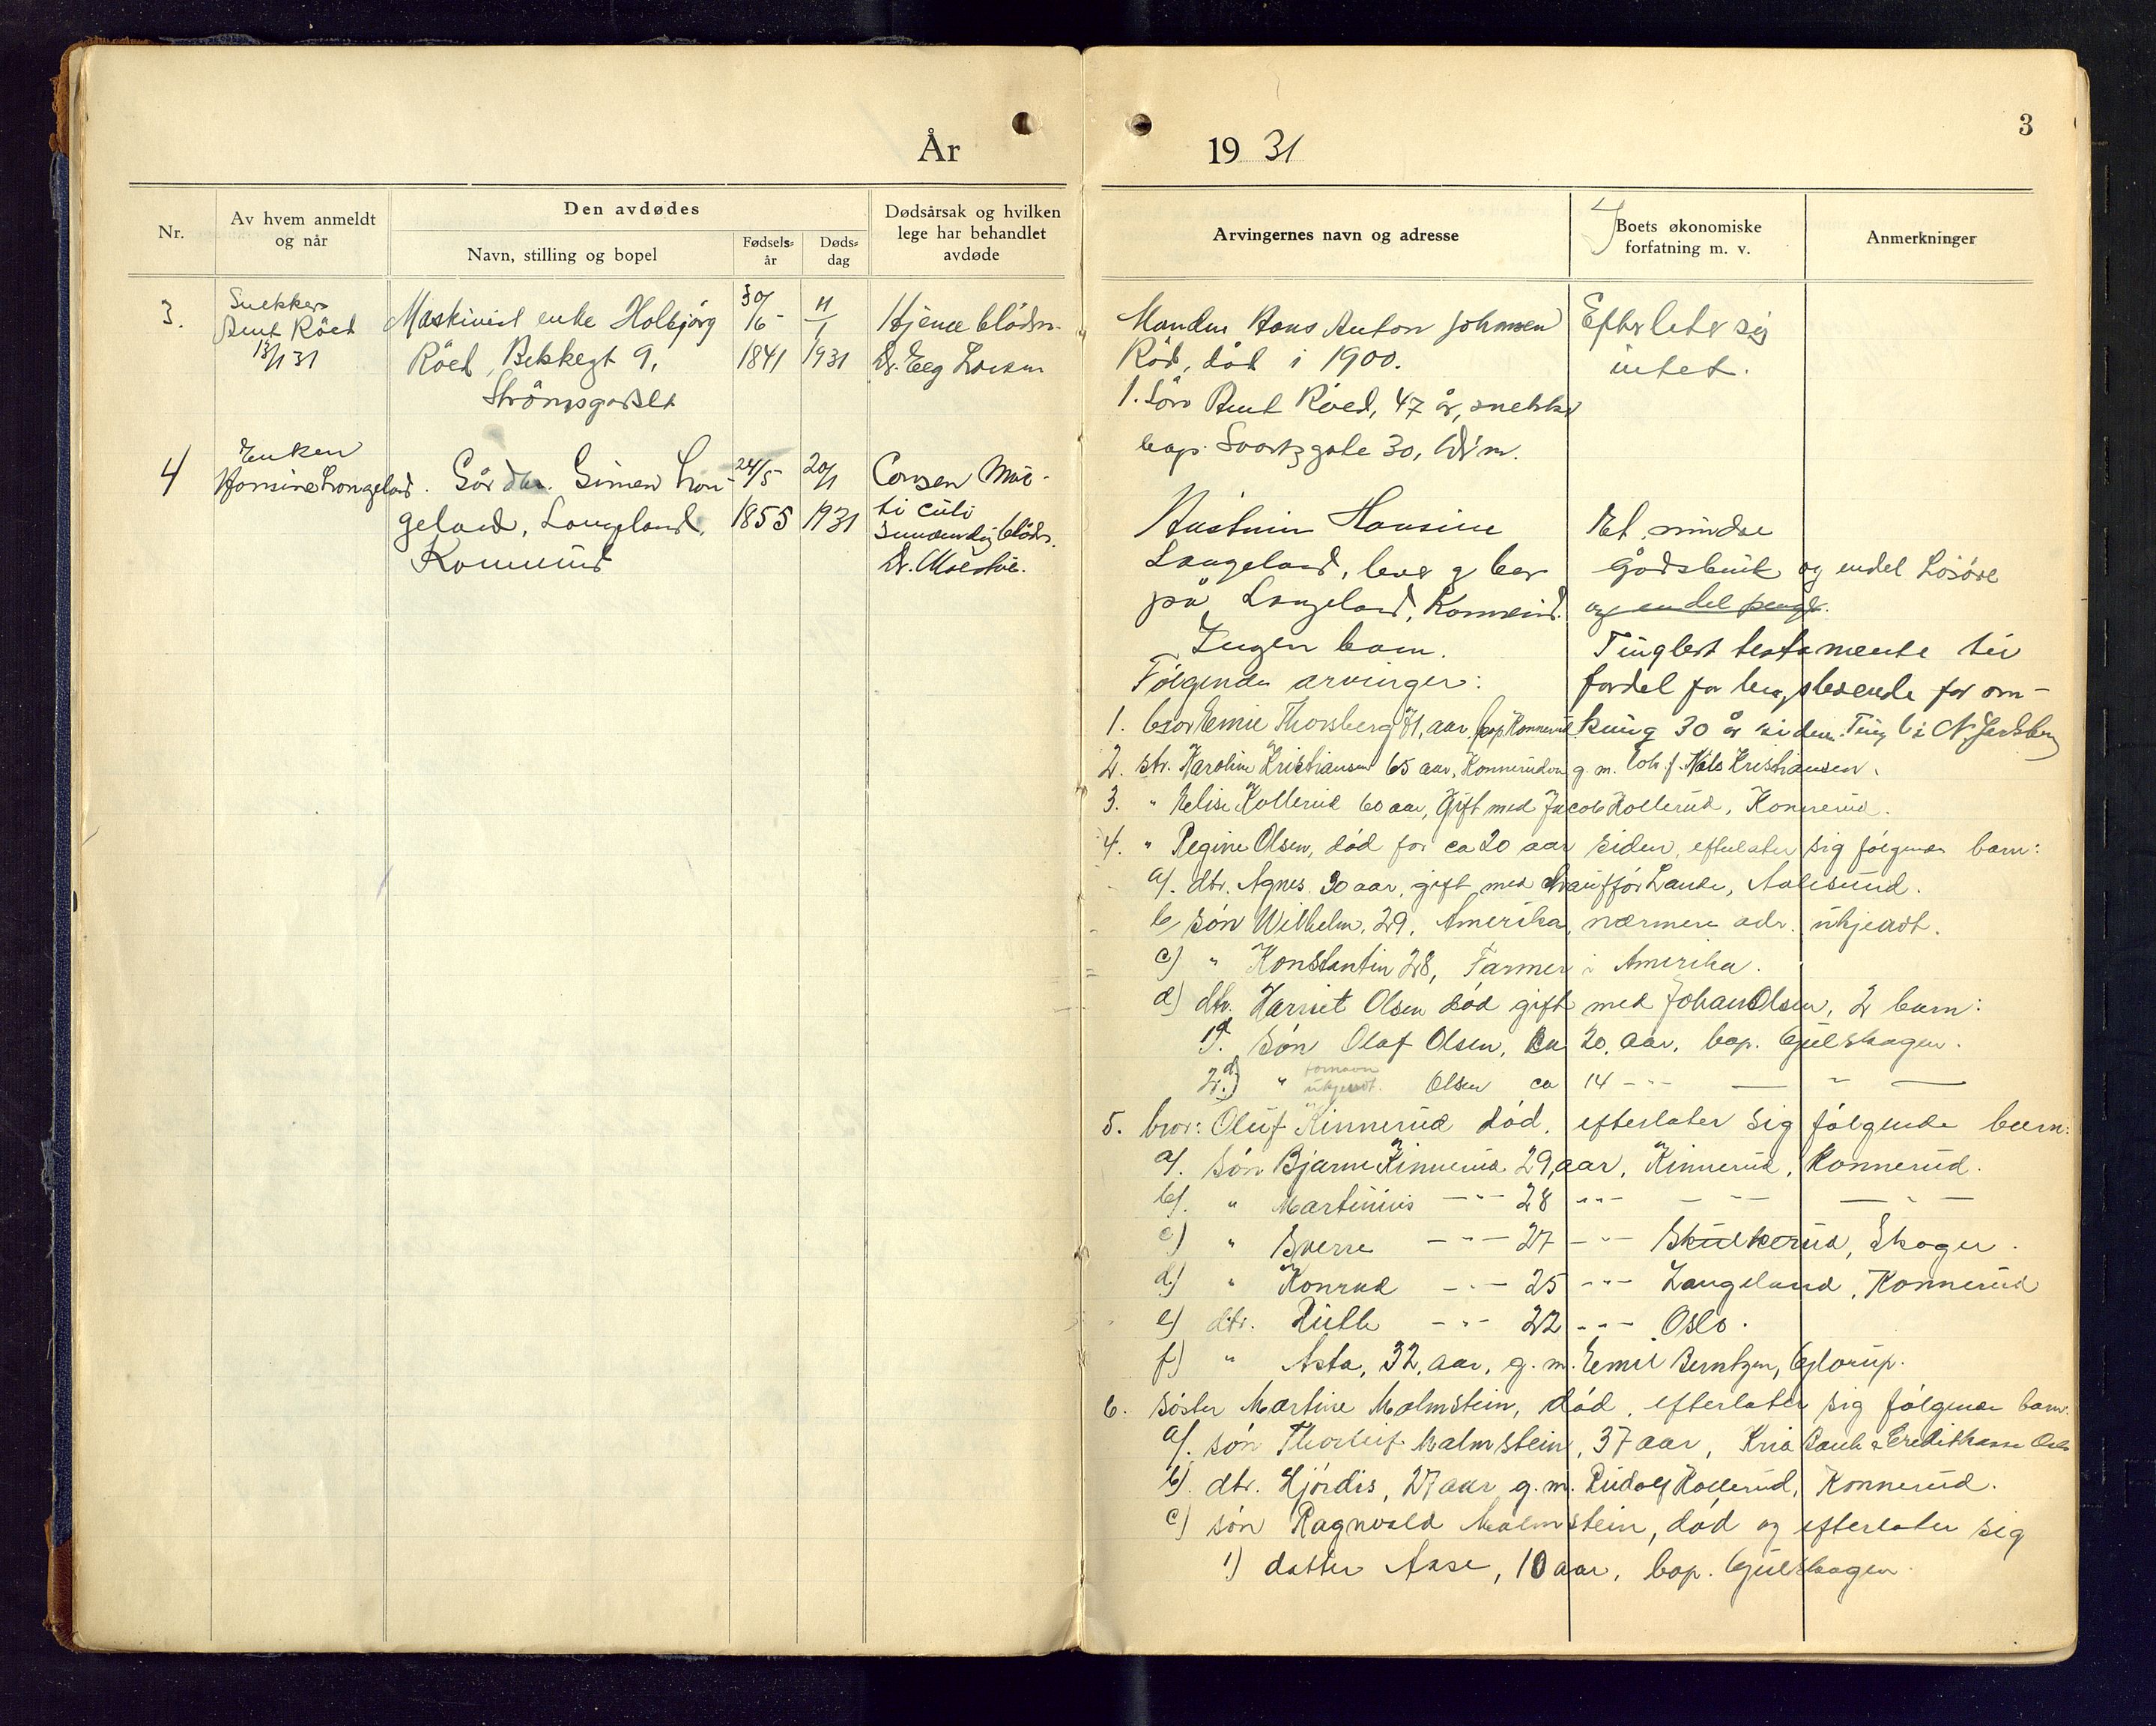 År
19 31
3
Nr.
Av hvem anmeldt
og når
Den avdødes
Navn, stilling og bopel
Fødsels-
år
Døds-
dag
Dødsårsak og hvilken
lege har behandlet
avdøde
Arvingernes navn og adresse
Boets økonomiske
forfatning m. v.
Anmerkninger
3.
Snekker
Bent Röed
13/1 31
Maskinist enke Holbjörg
Röed, Bekkegt 9,
Strömsgodset
30/6-
1841
11/1
1931
Hjerneblödn.
Dr. Eeg Larsen
Manden Hans Anton Johansen
Röd, död i 1900.
1. Sön Bent Röed, 47 år, snekker
bop. Svartzgate 30, Dr.m.
Efterlater sig
intet.
4
Enken
Hansine Langeland.
Gårdbr. Simen Lan-
geland, Langeland,
Konnerud
24/5-
1855
20/1
1931
Dr. Moestue.
Hustruen Hansine
Langeland, lever og bor
på Langeland, Konnerud.
Ingen barn.
Følgende arvinger:
Et mindre
gårdsbruk og endel Lösöre
og endel penge.
Tinglest testamente til
fordel for lengstlevende for om-
kring 30 år siden. Tingl. i N. Jarlsberg
1. bror Emil Thorsberg 71, aar, bop. Konnerud
2. str. Karoline Kristiansen 65 aar, Konnerud g. m. Nils Kristiansen.
3. " Elise Kollerud 60 aar, Gift med Jacob Kollerud, Konnerud.
4. " Regine Olsen, död for ca 20 aar siden, efterlater sig følgende barn:
a). dtr. Agnes 30 aar, gift med chauffør Lande, Aalesund.
b) søn Wilhelm, 29, Amerika, nærmere adr. ukjendt.
c) " Konstantin 28, Farmer i Amerika.
d) dtr. Harriet Olsen død gift med Johan Olsen, 2 barn:
1d. Søn Olaf Olsen, ca 20, aar, bop. Gulskogen.
2.d) " fornavn ukjendt. Olsen ca 14 - " - — " —
5. bror: Oluf Kinnerud død, efterlater sig følgende barn:
a). søn Bjarne Kinnerud 29, aar, Kinnerud, Konnerud.
b). " Martinius - " - 28 - " - — " — — " —
c) " Sverre - " - 27 - " - Skulkerud, Skoger.
d) " Konrad - " - 25 - " - Langeland, Konnerud
e) dtr. Ruth - " - 22 - " - Oslo.
f) " Asta, 32, aar, g. m. Emil Berntzen, Glorup.
6. søster Martine Malmstein, død, efterlater sig følgende barn:
a). søn Thorleif Malmstein, 37 aar, Kria Bank & Creditkasse Oslo
b). dtr. Hjørdis, 27 aar g. m. Rudolf Kollerud, Konnerud.
c) søn Ragnvald Malmstein, død og efterlater sig
1) datter Aase, 10 aar, bop. Gulskogen.